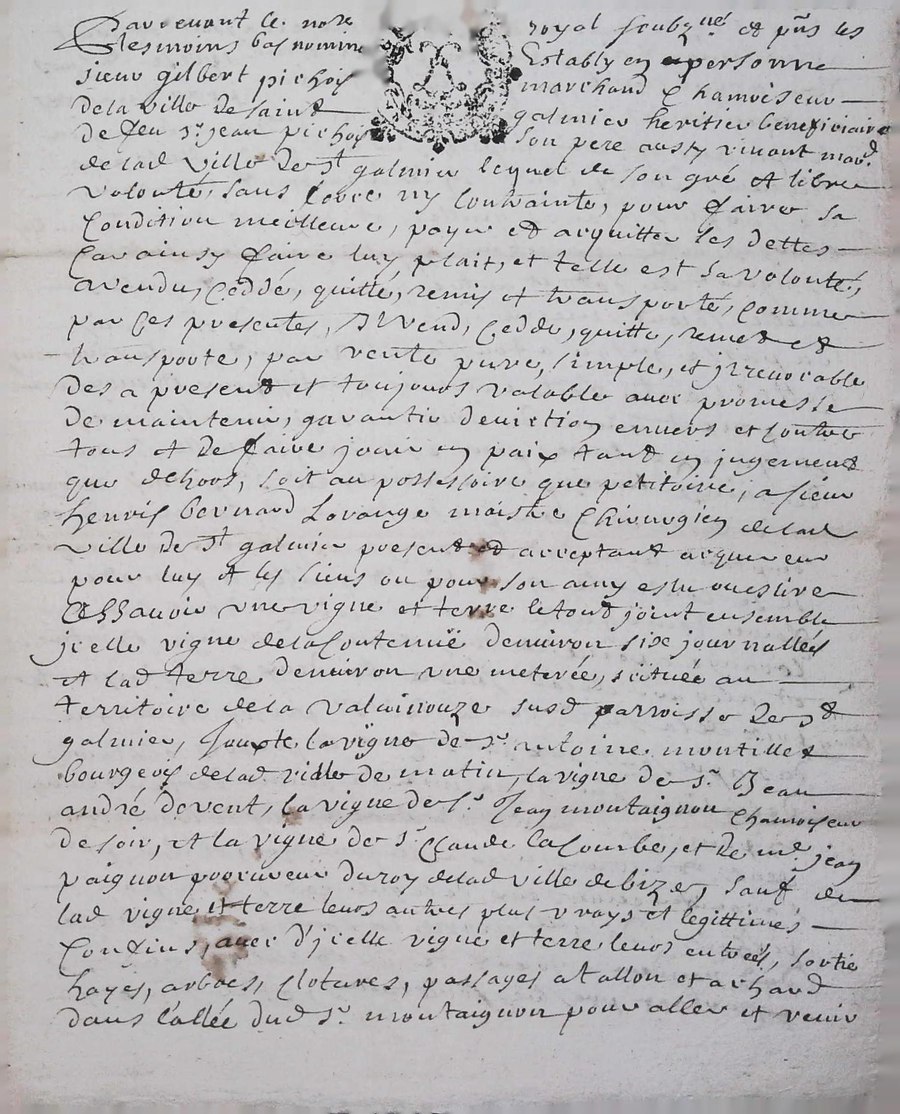 Pardevant le no.re royal soubz.né et p.ns les
tesmoins bas nommé Estably en personne
sieur gilbert pichois marchand Chamoiseur
de la ville de saint galmier heritier beneficiaire
de feu s.r jean pichois son pere aussy vivant mar.d
de lad ville de s.t galmier lequel de son gré et libre
volonté, sans force ny contrainte, pour faire sa
Condition meilleure, payer et acquitter les dettes
Car ainsy faire luy plait, et telle est sa volonté,
a vendu, Ceddé, quitté, remis et transporté, Comme
par Ces presentes, Il vend, Cedde, quitte, remet et
transporte, par vente pure, simple, et jrrevocable
des a present et toujours valable avec promesse
de maintenir, garantir deviction envers et Contre
tous et de faire jouir en paix tant en jugement
que dehors, soit au possessoire que petitoire, a sieur
henris bernard Lorange maistre Chirurgien de lad
ville de s.t galmier present et acceptant acquereur
pour luy et les siens ou pour son amy eslu ou eslire
Assavoir une vigne et terre le tout joint ensemble
jcelle vigne de la Contenüe denviron six journallés
et lad terre denviron une meterée, scituée au
territoire de la valainouze susd parroisse de s.t
galmier, Jouxte la vigne de s.r antoine montillet
bourgeois de lad ville de matin, la vigne de s.r Jean
andré de vent, la vigne de s.r Jean montaignon Chamoiseur
de soir, et la vigne de s.r Claude la Courbe, et de m.e jean
paignon procureur du roy de lad ville de bize, sauf de
lad vigne et terre leurs autres plus vrays et legittimes
Confins, avec d'jcelle vigne et terre leurs entrées, sortie
hayes, arbres, Clotures, passages a tallon et a char
dans l'allée dud s.r montaignon pour aller et venir